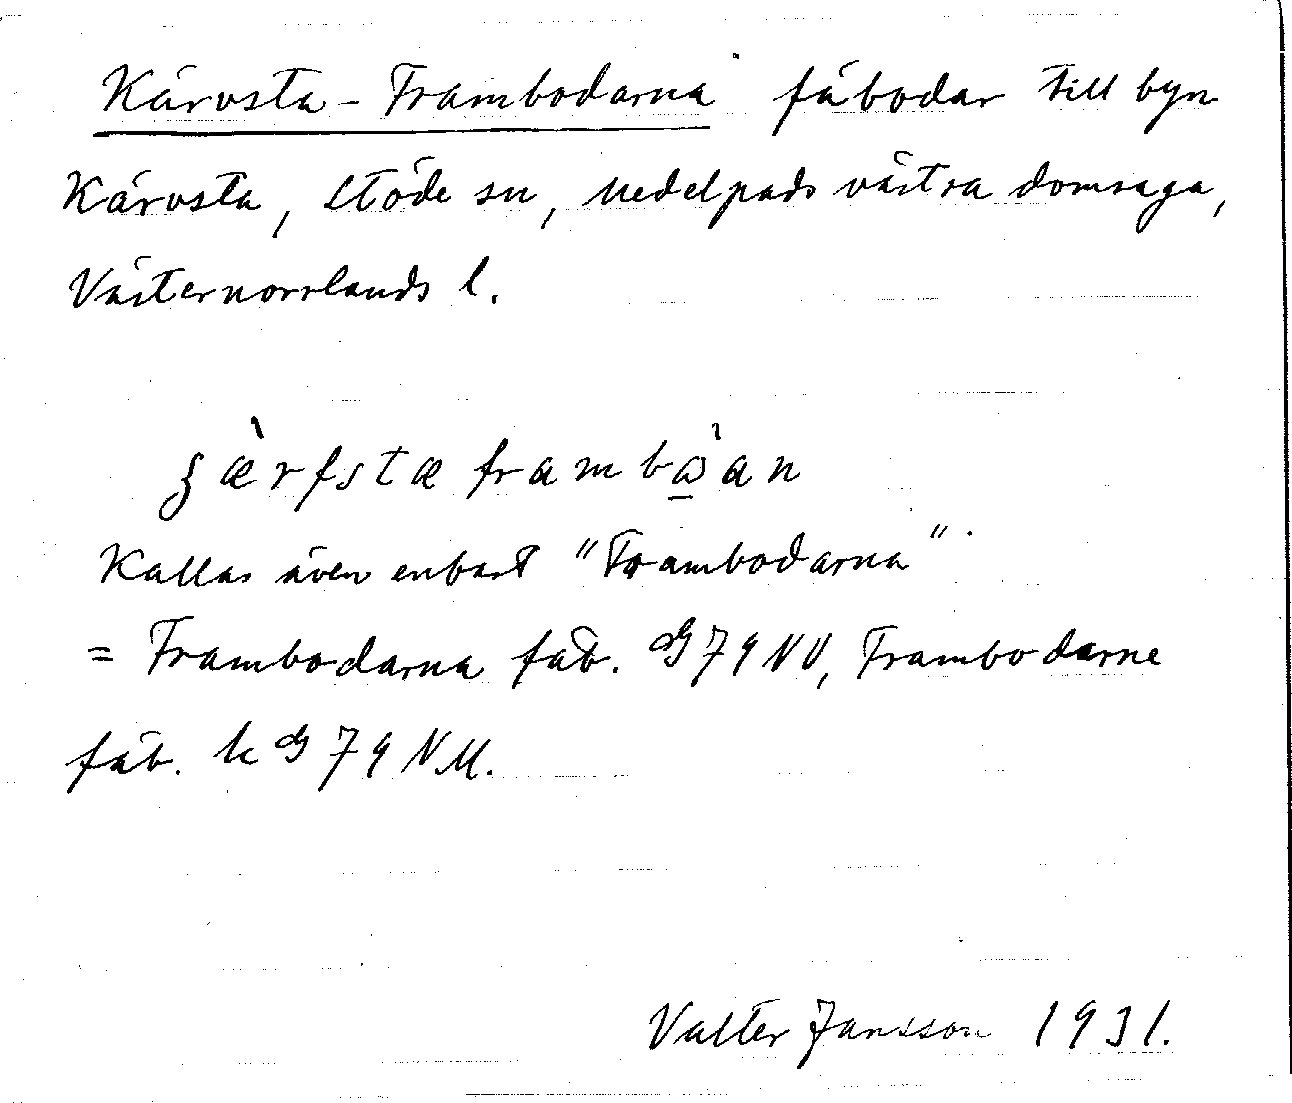 Kärvsta-Frambodarna fäbodar till byn
Kärvsta, Stöde sn, Medelpads västra domsaga,
Västernorrlands l.
ʒæ̀rfstæframbɷ̀an
Kallas även enbart "Frambodarna".
= Frambodarna fäb. G 79 NV, Frambodarne
fäb. k G 79 NM.
Valter Jansson 1931.